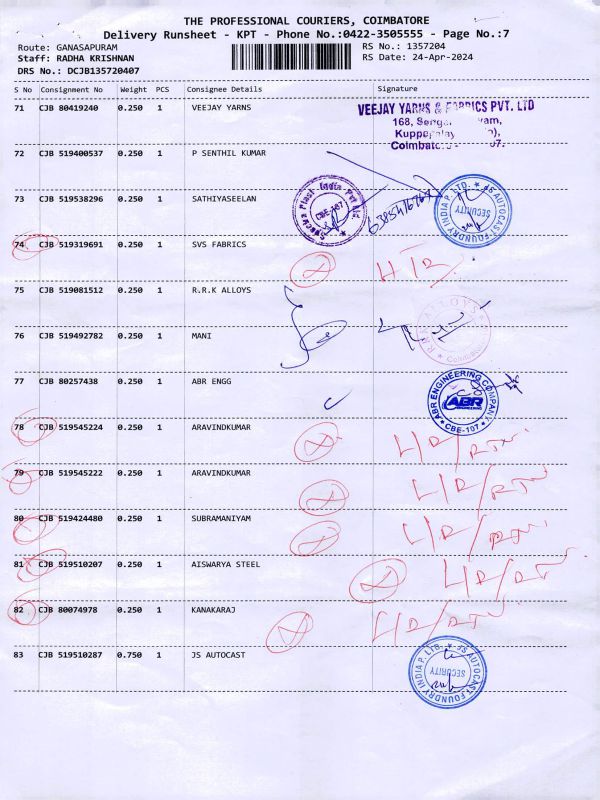 THE PROFESSIONAL COURIERS, COIMBATORE
Delivery Runsheet - KPT - Phone No.:0422-3505555 - Page No.:7
Route: GANASAPURAM
RS No.: 1357204
Staff: RADHA KRISHNAN
RS Date: 24-Apr-2024
DRS No.: DCJB135720407
S No Consignment No Weight PCS Consignee Details Signature
71 CJB 80419240 0.250 1 VEEJAY YARNS
VEEJAY YARNS & FABRICS PVT. LTD
168,
Coimbatore
72 CJB 519400537 0.250 1 P SENTHIL KUMAR
73 CJB 519538296 0.250 1 SATHIYASEELAN
India Pvt Ltd
CBE-107
JS AUTOCAST FOUNDRY INDIA P. LTD.
SECURITY
74 CJB 519319691 0.250 1 SVS FABRICS
75 CJB 519081512 0.250 1 R.R.K ALLOYS
ALLOYS
Coimbatore
76 CJB 519492782 0.250 1 MANI
77 CJB 80257438 0.250 1 ABR ENGG
ABR ENGINEERING COMPANY
ABR
ENGINEERING
CBE-107
78 CJB 519545224 0.250 1 ARAVINDKUMAR
79 CJB 519545222 0.250 1 ARAVINDKUMAR
80 CJB 519424480 0.250 1 SUBRAMANIYAM
81 CJB 519510207 0.250 1 AISWARYA STEEL
82 CJB 80074978 0.250 1 KANAKARAJ
83 CJB 519510287 0.750 1 JS AUTOCAST
JS AUTOCAST FOUNDRY INDIA P. LTD.
SECURITY